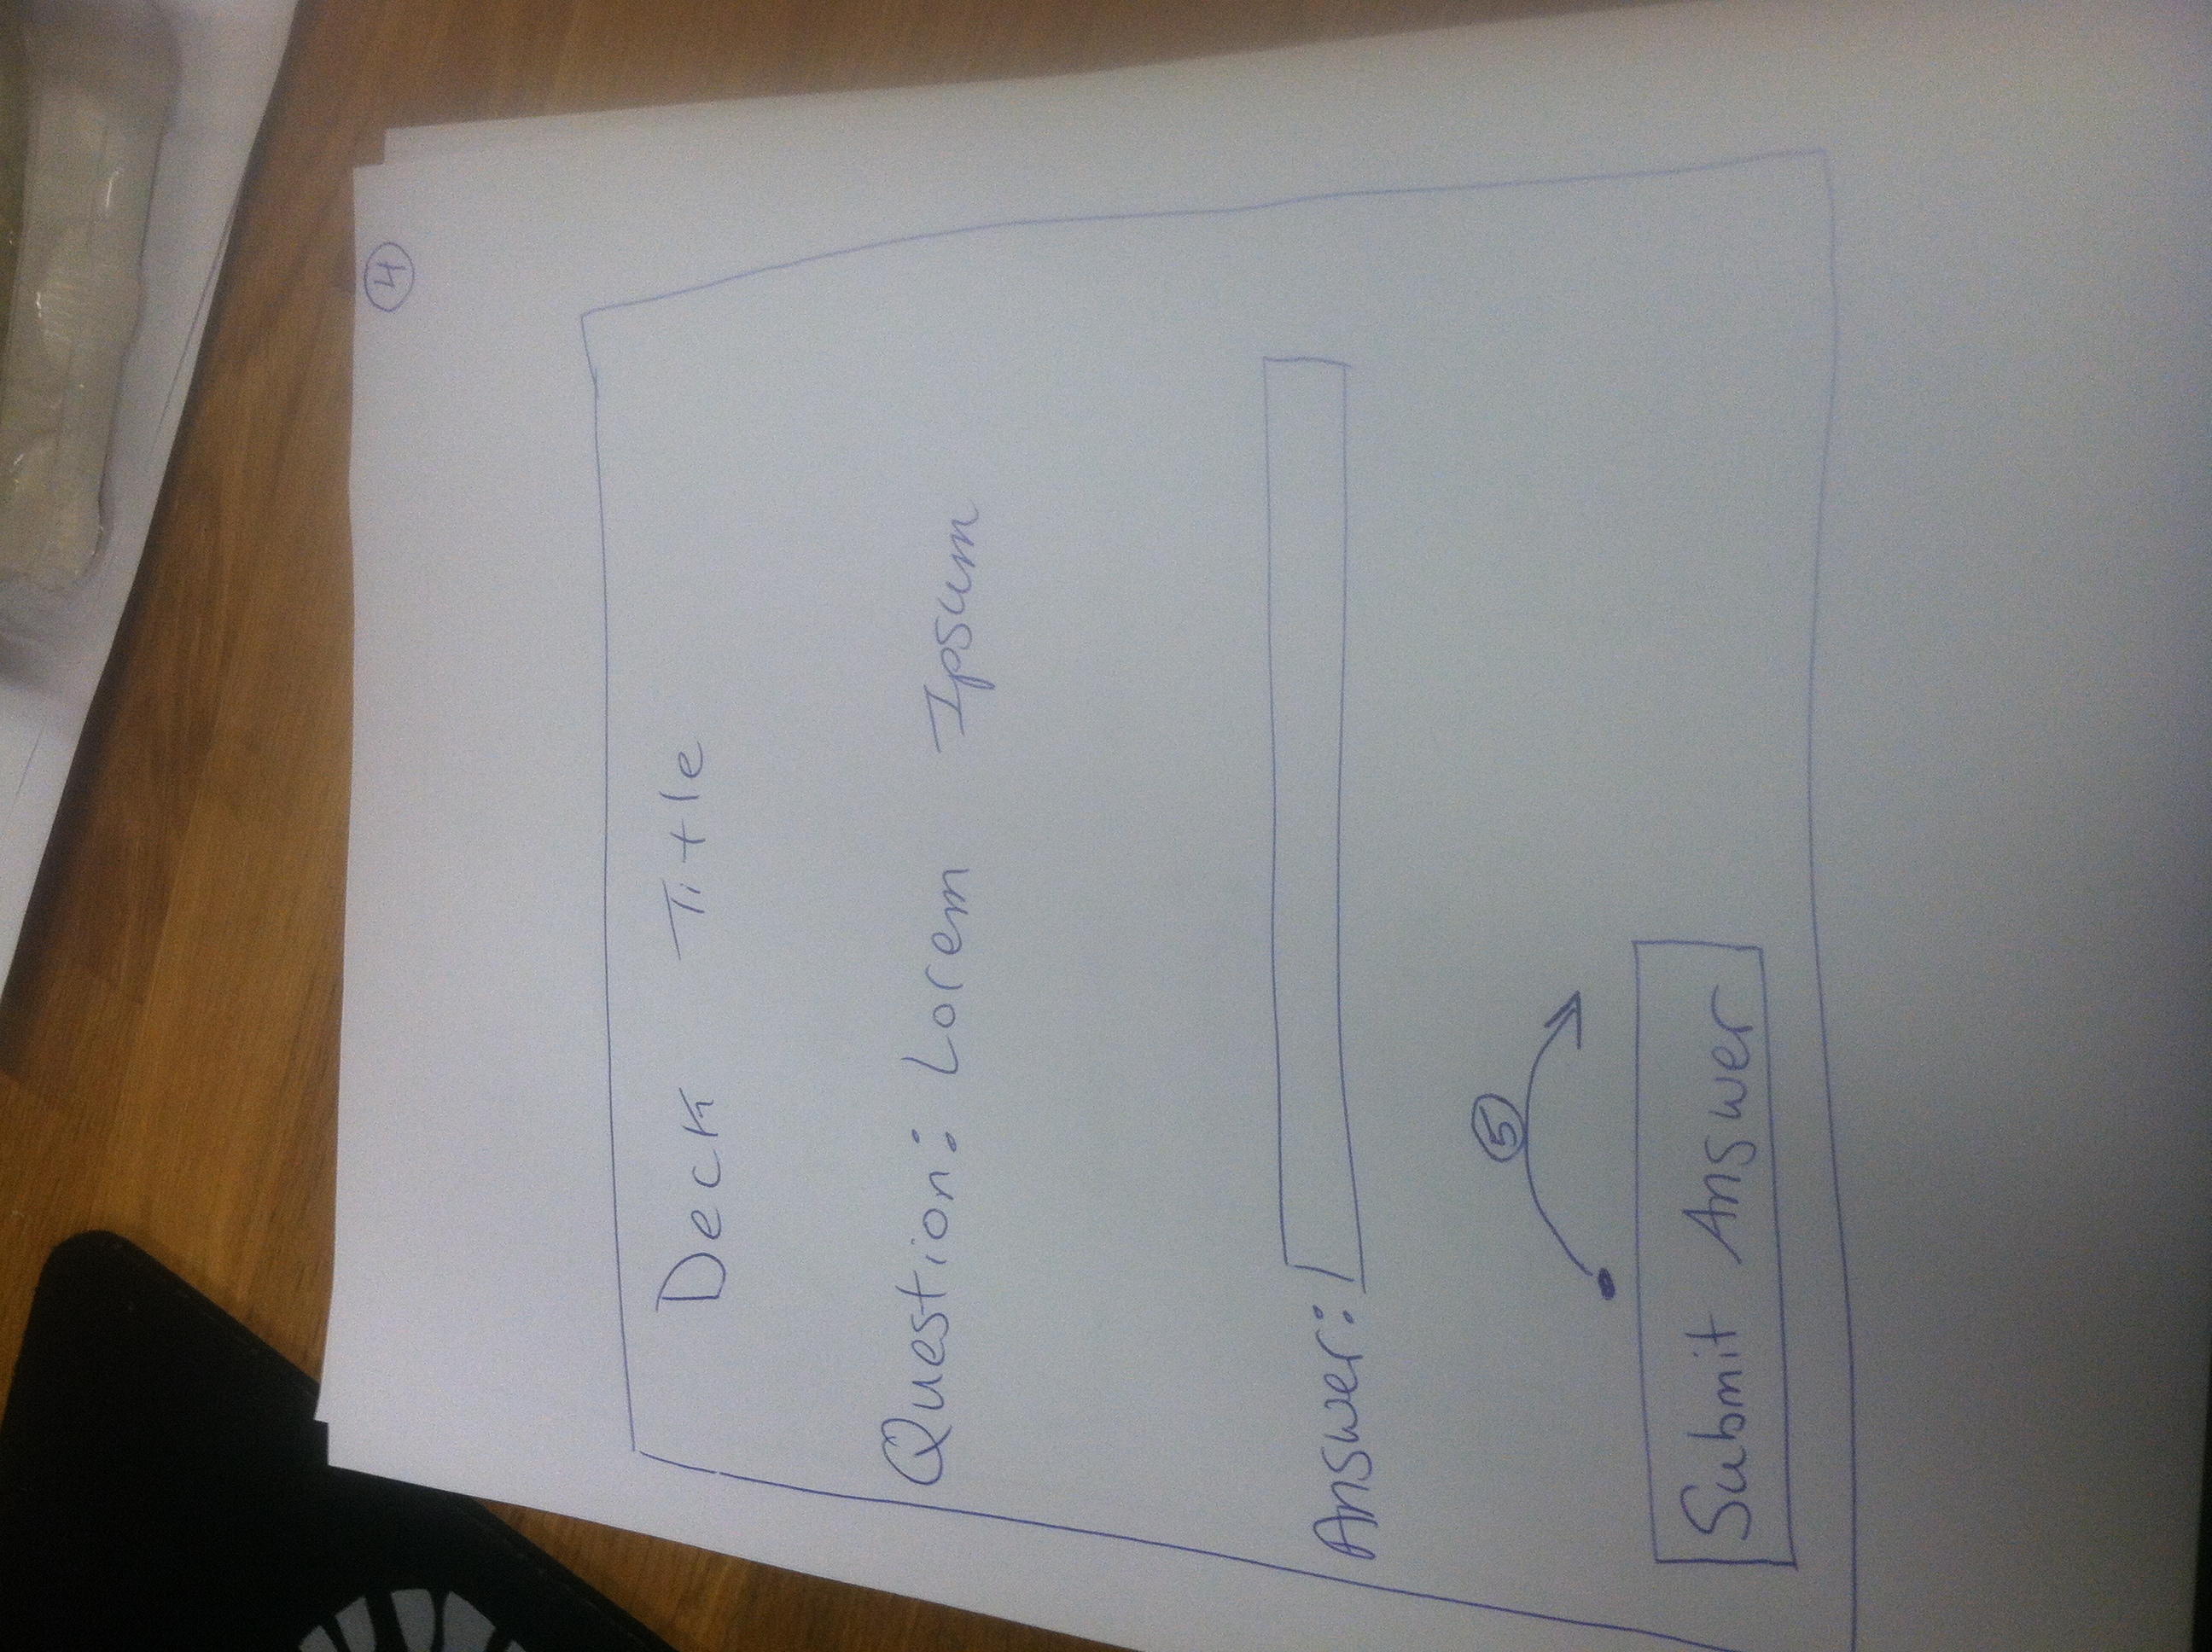 4
Deck Title
Question: Lorem Ipsum
Answer:
5
Submit Answer